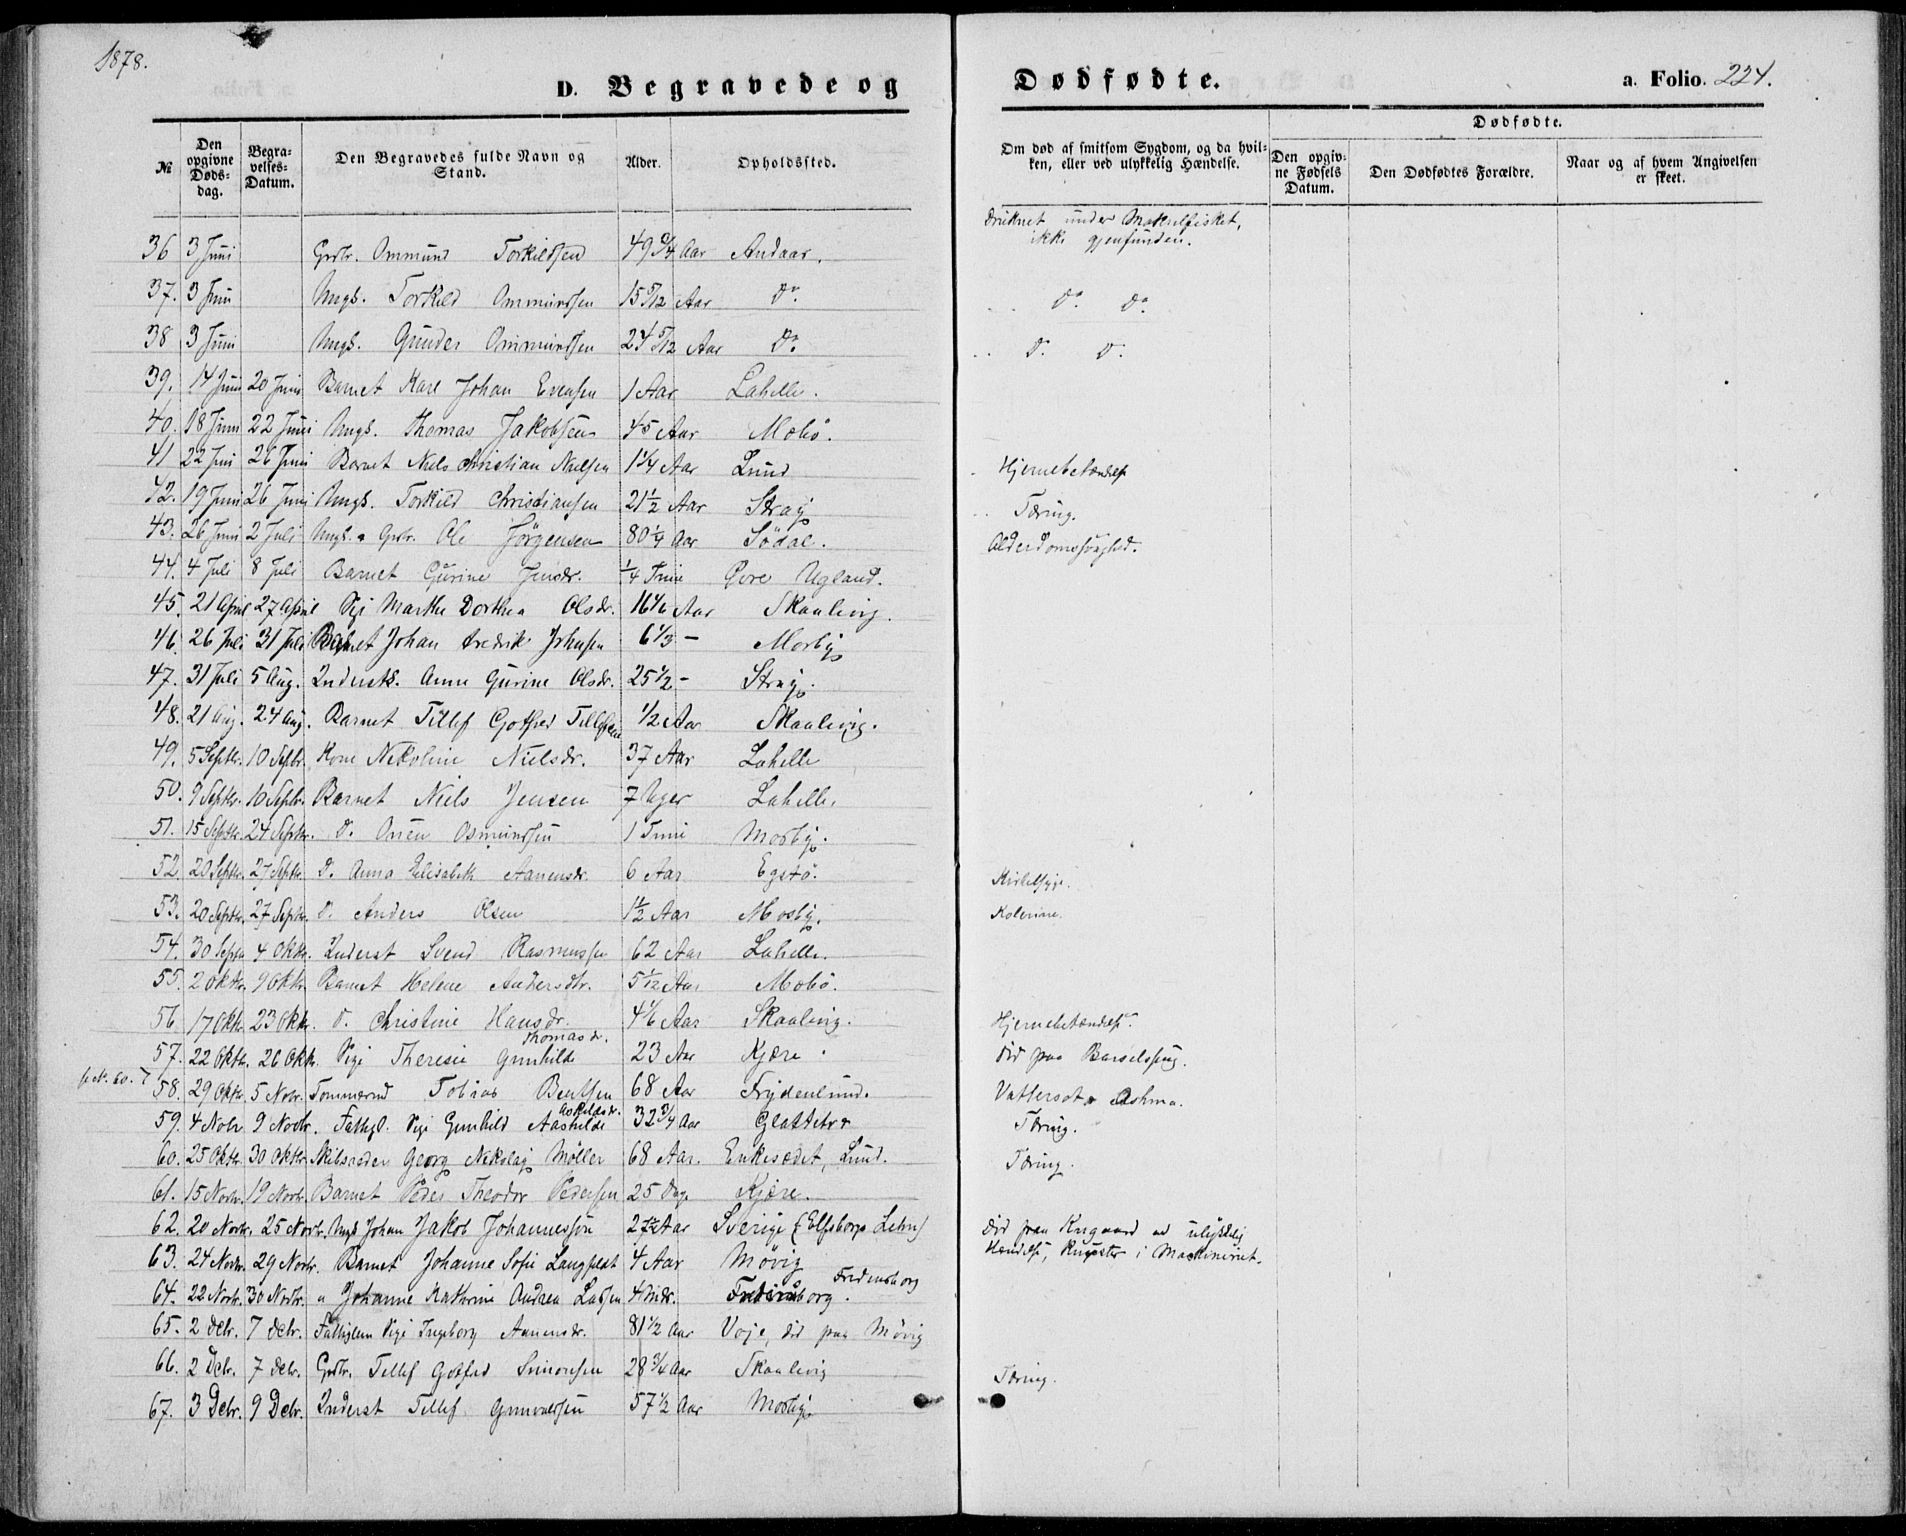 1878.
D. Begravede og
Dødfødte.
a. Folio. 224.
№
Den opgivne Døds-dag.
Begra-velses-Datum.
Den Begravedes fulde Navn og Stand.
Alder.
Opholdssted.
Om død af smitsom Sygdom, og da hvil-ken, eller ved ulykkelig Hændelse.
Dødfødte.
Den opgiv-ne Fødsels Datum.
Den Dødfødtes Forældre.
Naar og af hvem Angivelsen er skeet.
36 3 Juni Ommund Torkildsen 49 3/4 Aar Andaas. Druknet under Makrelfisket, ikke gjenfunden.
37. 3 Juni Ungk. Torkild Ommundsen 15 5/12 Aar Do. Do. Do.
38 3 Juni Ungk. Gunder Ommundsen 24 5/12 Aar Do. D. D.
39. 14 Juni 20 Juni Barnet Karl Johan Evensen 1 Aar Lahelle.
40. 18 Juni 22 Juni Ungk. Thomas Jakobsen 45 Aar Mæbø.
41 22 Juni 26 Juni Barnet Niels Christian Nielsen 1 1/4 Aar Lund Hjernebetændels
42. 19 Juni 26 Juni Ungk. Torkild Christiansen 21 1/2 Aar Stray Tæring.
43. 26 Juni 2 Juli Ole Jørgensen 80 1/4 Aar Sødal. Alderdomssvaghed.
44. 4 Juli 8 Juli Barnet Gurine Jensdr. 1/4 Time Øvre Ugland.
45. 21 April 27 April Pige Marthe Dorthea Olsdr. 16 1/6 Aar Skaalevig.
46. 26 Juli 31 Juli Barnet Johan Fredrik Johnsen 6 1/3 - Mosby
47. 31 Juli 5 Aug. Inderstk. Anne Gurine Olsdr. 25 1/2 - Stray.
48. 21 Aug. 24 Aug. Barnet Tellef Gotfred Tellefsen 1/2 Aar Skaalevig.
49. 5 Septbr. 10 Septbr. Kone Nikoline Nielsdr. 37 Aar Lahelle
50. 9 Septbr. 10 Septbr. Barnet Niels Jensen 7 Uger Lahelle.
51. 15 Septbr. 24 Septbr. D. Osmundsen 1 Time Mosby.
52. 20 Septbr. 27 Septbr. D. Anna Elisabeth Aanensdr. 6 Aar Egstø.
53. 20 Septbr. 27 Septbr. D. Anders Olsen 1 1/2 Aar Mosby. Kolerine.
54. 30 Septbr 4 Oktbr. Inderst Svend Rasmussen 62 Aar Lahelle.
55. 2 Oktbr. 9 Oktbr. Barnet Helene Andersdtr. 5 1/12 Aar Mæbø.
56 17 Oktbr. 23 Oktbr. D. Christine Hansdr. 4 1/6 Aar Skaalevig. Hjernebetændels.
57. 22 Oktbr. 26 Oktbr. Pige Theresie Gunhilde Thomasdr. 23 Aar Kjære. Død paa Barselseng.
se №. 60. 58. 29 Oktbr. 5 Novbr. Tømmermd Tobias Bentsen 68 Aar Frydenlund. Vattersot, Asthma.
59. 4 Novbr 9 Novbr. Fattigl. Pige Gunhild Aashilde Askildsdr. 32 3/4 Aar Glattetre Tæring.
60. 25 Oktbr. 30 Oktbr. Skibsreder Georg Nikolaj Møller 68 Aar. Enkesædet, Lund. Tæring.
61. 15 Novbr. 19 Novbr. Barnet Peder Theodor Pedersen 25 Dage Kjære.
62. 20 Novbr. 25 Novbr. Ungk Johan Jakob Johannessøn 27 1/2 Aar Sverige (Elfsborgs Lehn) Død paa Krugaard ved ulykkelig Hændelse, Knuset i Maskineriet.
63. 24 Novbr. 29 Novbr. Barnet Johanne Sofie Langfeldt 4 Aar Møvig
64. 22 Novbr. 30 Novbr. " Johanne Kathrine Andrea Larsen 4 Mdr. Fredensborg. Fredensborg
65. 2 Debr. 7 Debr. Fattiglem Pige Ingeborg Aanensdr. 81 1/2 Aar Voje, død paa Møvig
66. 2 Debr. 7 Debr. Gbr. Tellef Gotfred Simonsen 28 3/4 Aar Skaalevig Tæring.
67. 3 Debr. 9 Debr. Inderst Tellef Gunvaldsen 57 1/2 Aar Mosby.